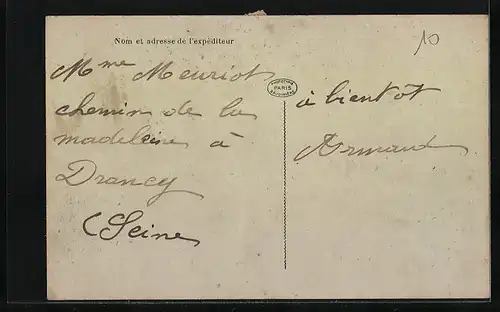 Nom et adresse de l'expéditeur
10
Mme Meuriot
chemin de la
madeleine à
Drancy
(Seine
PARIS
à bientôt
Armand